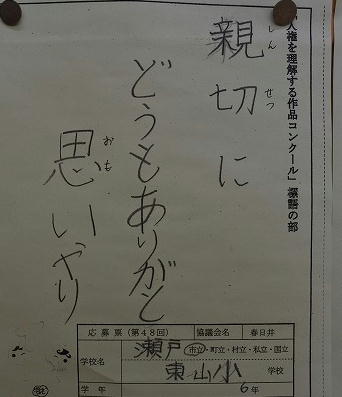 「人権を理解する作品コンクール」標語の部
親切に
しんせつ
どうもありがと
思いやり
おも
応募票(第48回)
協議会名
春日井
学校名
瀬戸
市立・町立・村立・私立・国立
東山小
学校
学年
6年